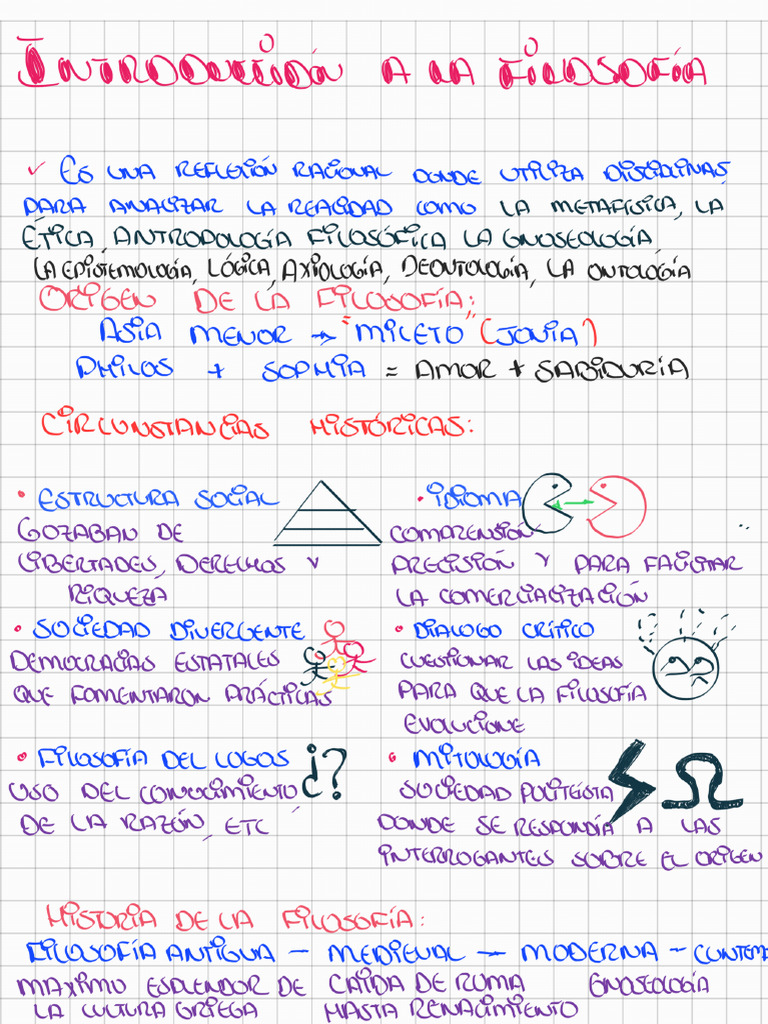 INTRODUCCIÓN A LA FILOSOFÍA
✓ ES UNA REFLEXIÓN RACIONAL DONDE UTILIZA DISCIPLINAS
PARA ANALIZAR LA REALIDAD COMO LA METAFÍSICA, LA
ÉTICA, ANTROPOLOGÍA FILOSÓFICA LA GNOSEOLOGÍA
LA EPISTEMOLOGÍA, LÓGICA, AXIOLOGÍA, DEONTOLOGÍA, LA ONTOLOGÍA
ORIGEN DE LA FILOSOFÍA:
ASIA MENOR → "MILETO" (JONIA)
PHILOS + SOPHIA = AMOR + SABIDURÍA
CIRCUNSTANCIAS HISTÓRICAS:
• ESTRUCTURA SOCIAL
GOZABAN DE
LIBERTADES, DERECHOS Y
RIQUEZA
• IDIOMA
COMPRENSIÓN
PRECISIÓN Y PARA FACILITAR
LA COMERCIALIZACIÓN
• SOCIEDAD DIVERGENTE
DEMOCRACIAS ESTATALES
QUE FOMENTARON PRÁCTICAS
• DIALOGO CRÍTICO
CUESTIONAR LAS IDEAS
PARA QUE LA FILOSOFÍA
EVOLUCIONE
• FILOSOFÍA DEL LOGOS
USO DEL CONOCIMIENTO
DE LA RAZÓN, ETC
¿?
• MITOLOGÍA
SOCIEDAD POLITEISTA
DONDE SE RESPONDÍA A LAS
INTERROGANTES SOBRE EL ORIGEN
Ω
HISTORIA DE LA FILOSOFÍA:
FILOSOFÍA ANTIGUA — MEDIEVAL — MODERNA — CONTEM
MAXIMO ESPLENDOR DE CAÍDA DE ROMA GNOSEOLOGÍA
LA CULTURA GRIEGA HASTA RENACIMIENTO